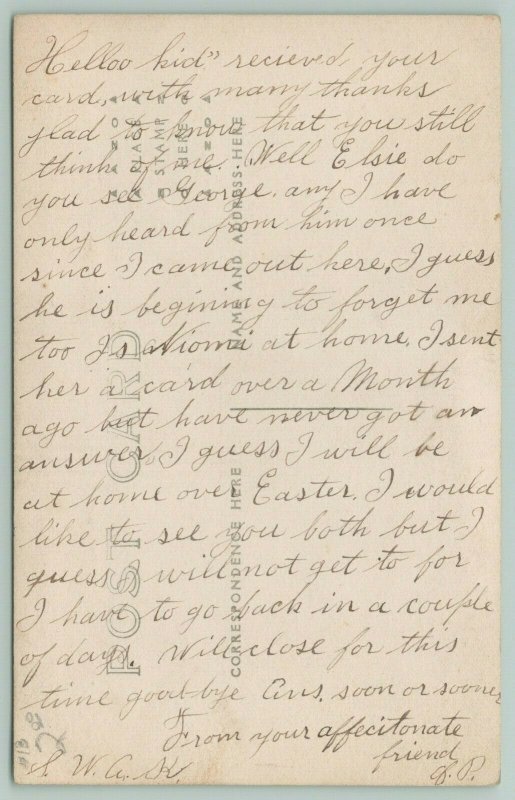 Helloo kid" recieved your
card, with many thanks
glad to know that you still
think of me. Well Elsie do
you see George. any I have
only heard from him once
since I came out here, I guess
he is begining to forget me
too Is Niomi at home. I sent
her a card over a Month
ago but have never got an
answer, I guess I will be
at home over Easter. I would
like to see you both but I
guess I will not get to for
I have to go back in a couple
of days. Will close for this
time good-bye Ans. soon or sooner
From your affecitonate
friend
S. W. A. K.
J. P.
POST CARD
CORRESPONDENCE HERE
NAME AND ADDRESS HERE
PLACE
STAMP
HERE
AZO
AZO